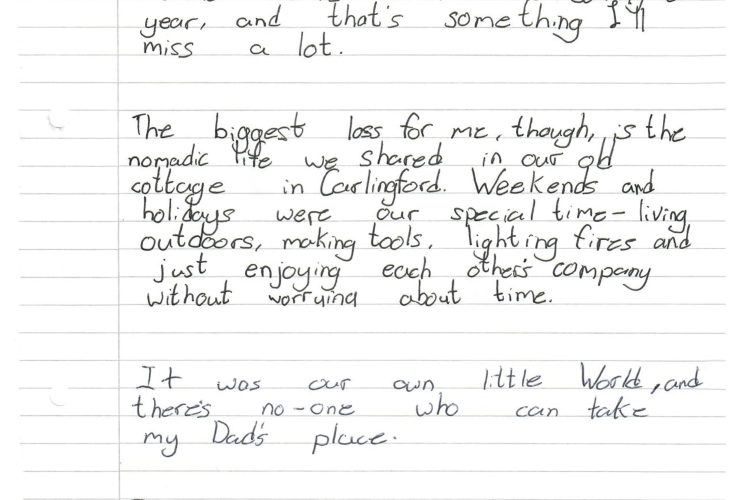 year, and that's something I'll
miss a lot.
The biggest loss for me, though, is the
nomadic life we shared in our old
cottage in Carlingford. Weekends and
holidays were our special time - living
outdoors, making tools, lighting fires and
just enjoying each other's company
without worrying about time.
It was our own little World, and
there's no-one who can take
my Dad's place.